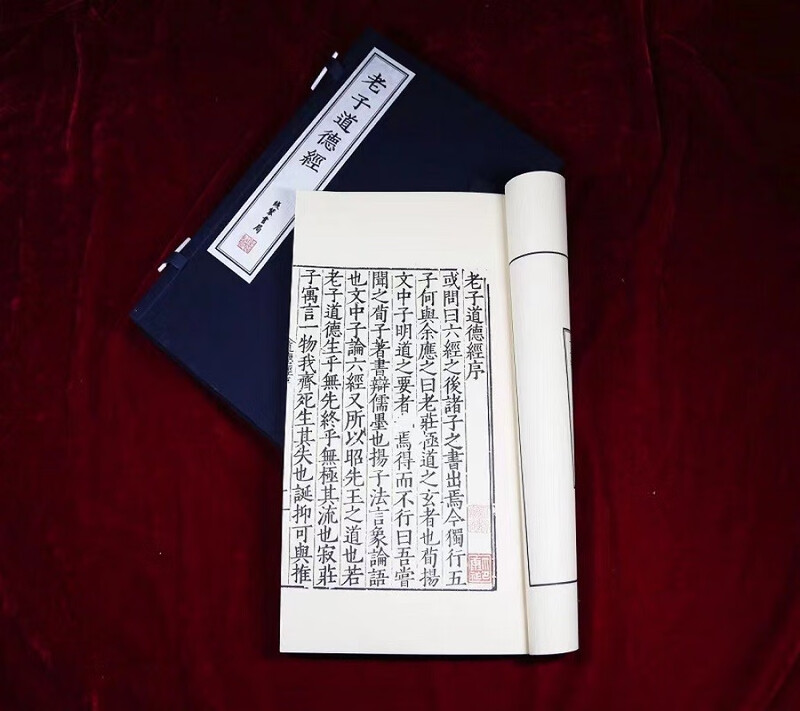 老子道德經
線裝書局
老子道德經序
或問曰六經之後諸子之書出焉今獨行五
子何與余應之曰老莊極道之玄者也荀揚
文中子明道之要者焉得而不行曰吾嘗
聞之荀子著書辯儒墨也揚子法言象論語
也文中子論六經又所以昭先王之道也若
老子道德生乎無先終乎無極其流也寂莊
子寓言一物我齊死生其失也誕抑可與推